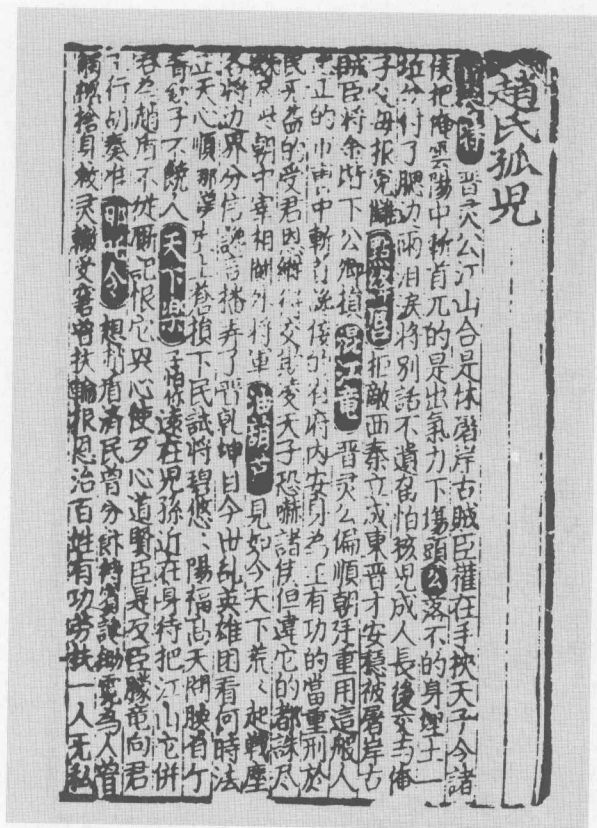 趙氏孤兒
晋灵公江山合是休屠岸古賊臣權在手挾天子令諸
侯把俺雲陽中斬首兀的是出氣力下塲頭 幺 落不的身埋土一
坵分付了腮边兩泪淚将別話不遺留怕孩兒成人長後交与俺
子父每报冤讎 点絳唇 拒敵西秦立成東晋才安穩被屠岸古
賊臣将金階下公卿損 混江竜 晋灵公偏順朝廷重用這般人
正的市曹中斬首讒侫的省府内安身为主有功的當重刑於
民无益的受君恩交欺凌天子恐嚇諸侯但違它的都誅尽
此朝中宰相閫外将軍 油胡芦 見如今天下荒〻起戰塵
各将边界分信讒言播弄了晋乾坤目今世乱英雄困看何時法
正天心順那上蒼損下民試将碧悠〻陽福高天問腆有个
子不饒人 天下樂 遠在兒孫近在身待把江山它併
趙盾不记恨它与心使歹心道賢臣是反臣朦竜向君
行胡奏准 那吒令 想趙盾濟民曾分為人曾
捨身救灵輒受君曾扶輪报恩治百姓有功勞扶一人无私